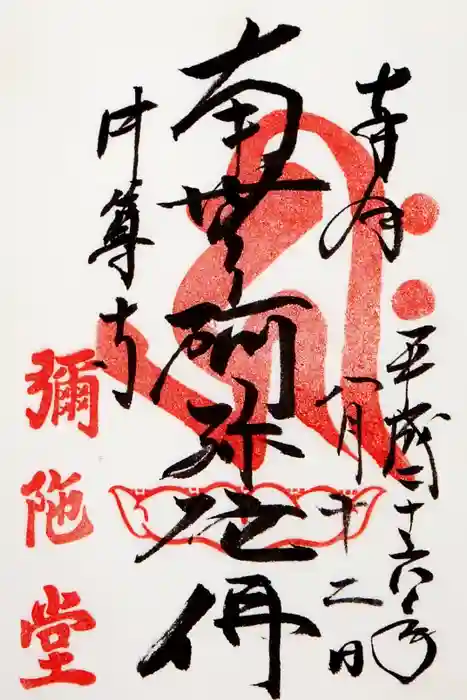 奉拝
平成二十六年
八月十二日
南無阿弥陀佛
中尊寺
彌陁堂